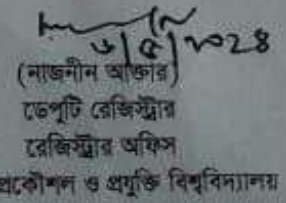 ৬|৫|২০২৪
(নাজনীন আক্তার)
ডেপুটি রেজিস্ট্রার
রেজিস্ট্রার অফিস
প্রকৌশল ও প্রযুক্তি বিশ্ববিদ্যালয়